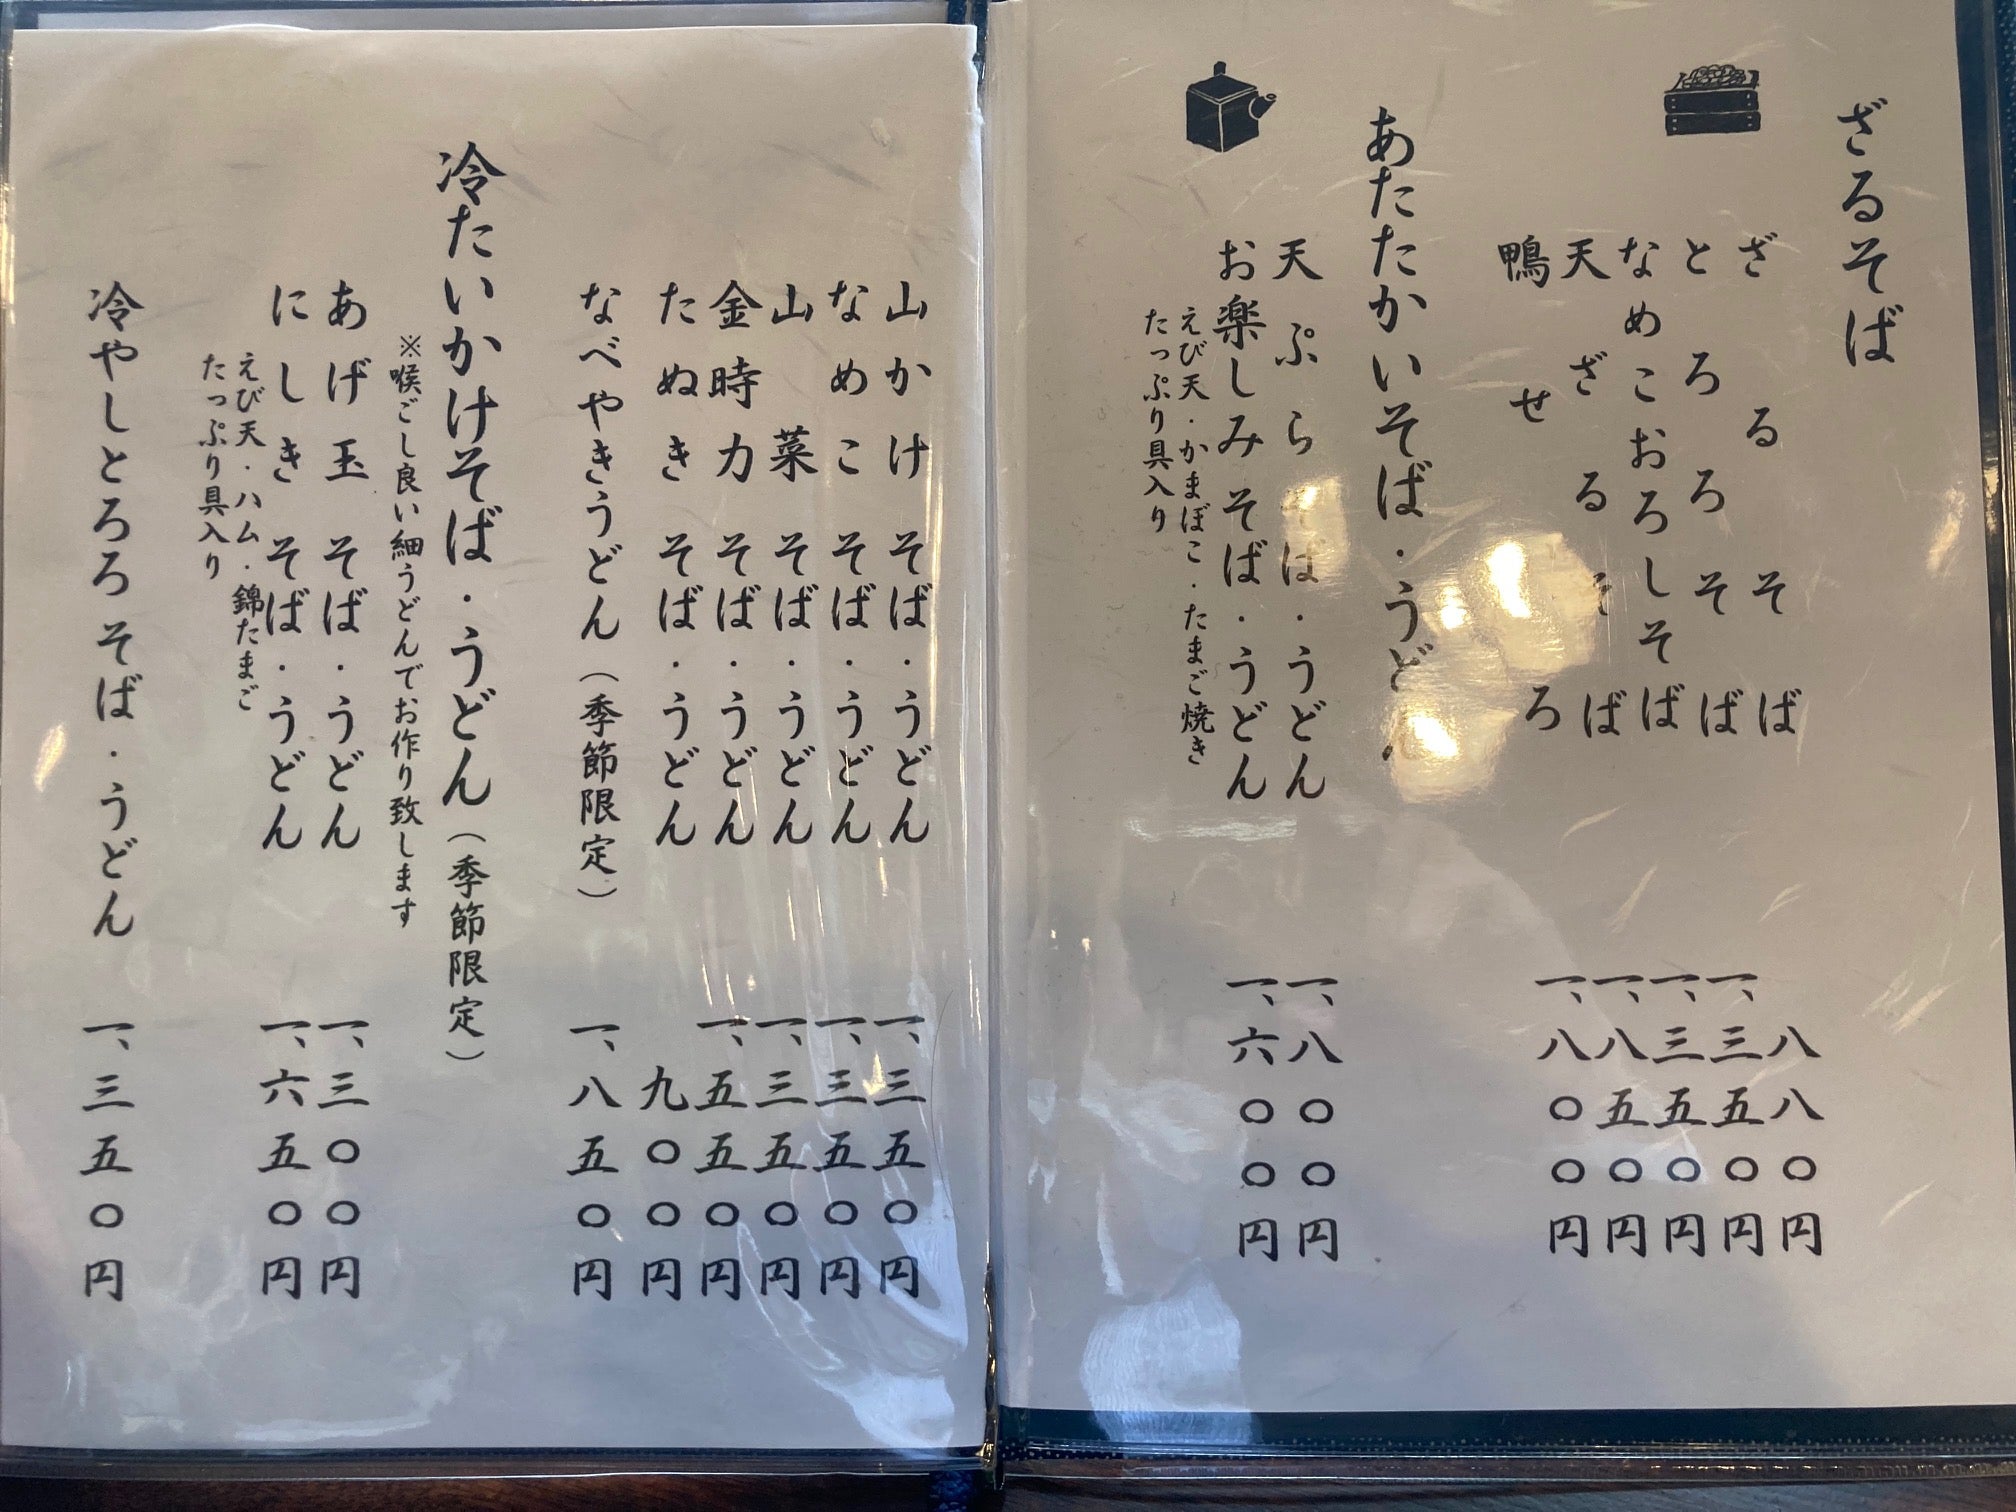 ざるそば
ざるそば 八八〇円
とろろそば 一、三五〇円
なめこおろしそば 一、三五〇円
天ざるそば 一、八五〇円
鴨せいろ 一、八〇〇円
あたたかいそば・うどん
天ぷらそば・うどん 一、八〇〇円
お楽しみそば・うどん 一、六〇〇円
えび天・かまぼこ・たまご焼き
たっぷり具入り
山かけそば・うどん 一、三五〇円
なめこそば・うどん 一、三五〇円
山菜そば・うどん 一、三五〇円
金時力そば・うどん 一、五五〇円
たぬきそば・うどん 九〇〇円
なべやきうどん（季節限定） 一、八五〇円
冷たいかけそば・うどん（季節限定）
※喉ごし良い細うどんでお作り致します
あげ玉そば・うどん 一、三〇〇円
にしきそば・うどん 一、六五〇円
えび天・ハム・錦たまご
たっぷり具入り
冷やしとろろそば・うどん 一、三五〇円